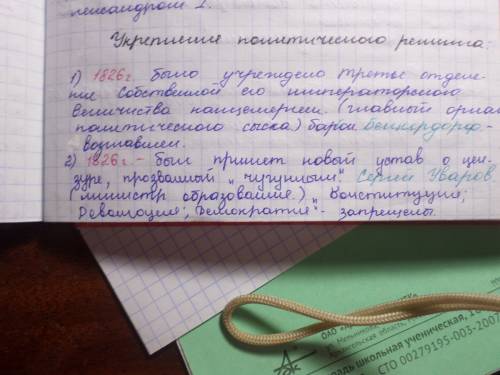 лександром I.
Укрепление политического режима:
1) 1826 г. было учреждено третье отделе-
ние Собственной его императорского
Величества канцелярии. (главный орган
политического сыска) барон Бенкендорф -
возглавлял.
2) 1826 г. - был принят новый устав о цен-
зуре, прозванный "чугунным". Сергей Уваров
(министр образования) "Конституция;
Революция; Демократия" - запрещены.
ОАО
область,
школьная ученическая,
СТО 00279195-003-2007